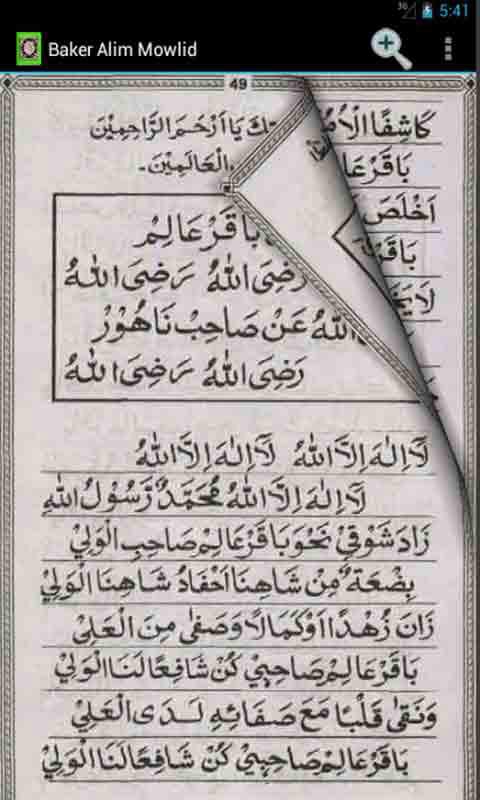 3G 5:41
Baker Alim Mowlid
49
كَاشِفًا الْاُمُ
تِكَ يَا اَرْحَمَ الرَّاحِمِيْنَ
بَاقَرْ عَا
الْعَالَمِيْنَ۔
اَخْلَصَ
بَاقَرْ عَالِمْ
رَضِيَ اللهُ رَضِيَ اللهُ
اللهُ عَنْ صَاحِبْ نَاهُوْرْ
رَضِيَ اللهُ رَضِيَ اللهُ
لَآ اِلٰهَ اِلَّا اللهُ لَآ اِلٰهَ اِلَّا اللهُ
لَآ اِلٰهَ اِلَّا اللهُ مُحَمَّدٌ رَّسُوْلُ اللهِ
زَادَ شَوْقِيْ نَحْوَ بَاقَرْ عَالِمْ صَاحِبِ الْوَلِيْ
بِضْعَةٌ مِنْ شَاهِنَا اَحْفَادُ شَاهِنَا الْوَلِيْ
زَانَ زُهْدًا اَوْ كَمَالًا وَصَفٰى مِنَ الْعَلِيْ
بَاقَرْ عَالِمْ صَاحِبِيْ كُنْ شَافِعًا لَنَا الْوَلِيْ
وَنَقٰى قَلْبًا مَعَ صَفَائِهِ لَدَى الْعَلِيْ
بَاقَرْ عَالِمْ صَاحِبِيْ كُنْ شَافِعًا لَنَا الْوَلِيْ